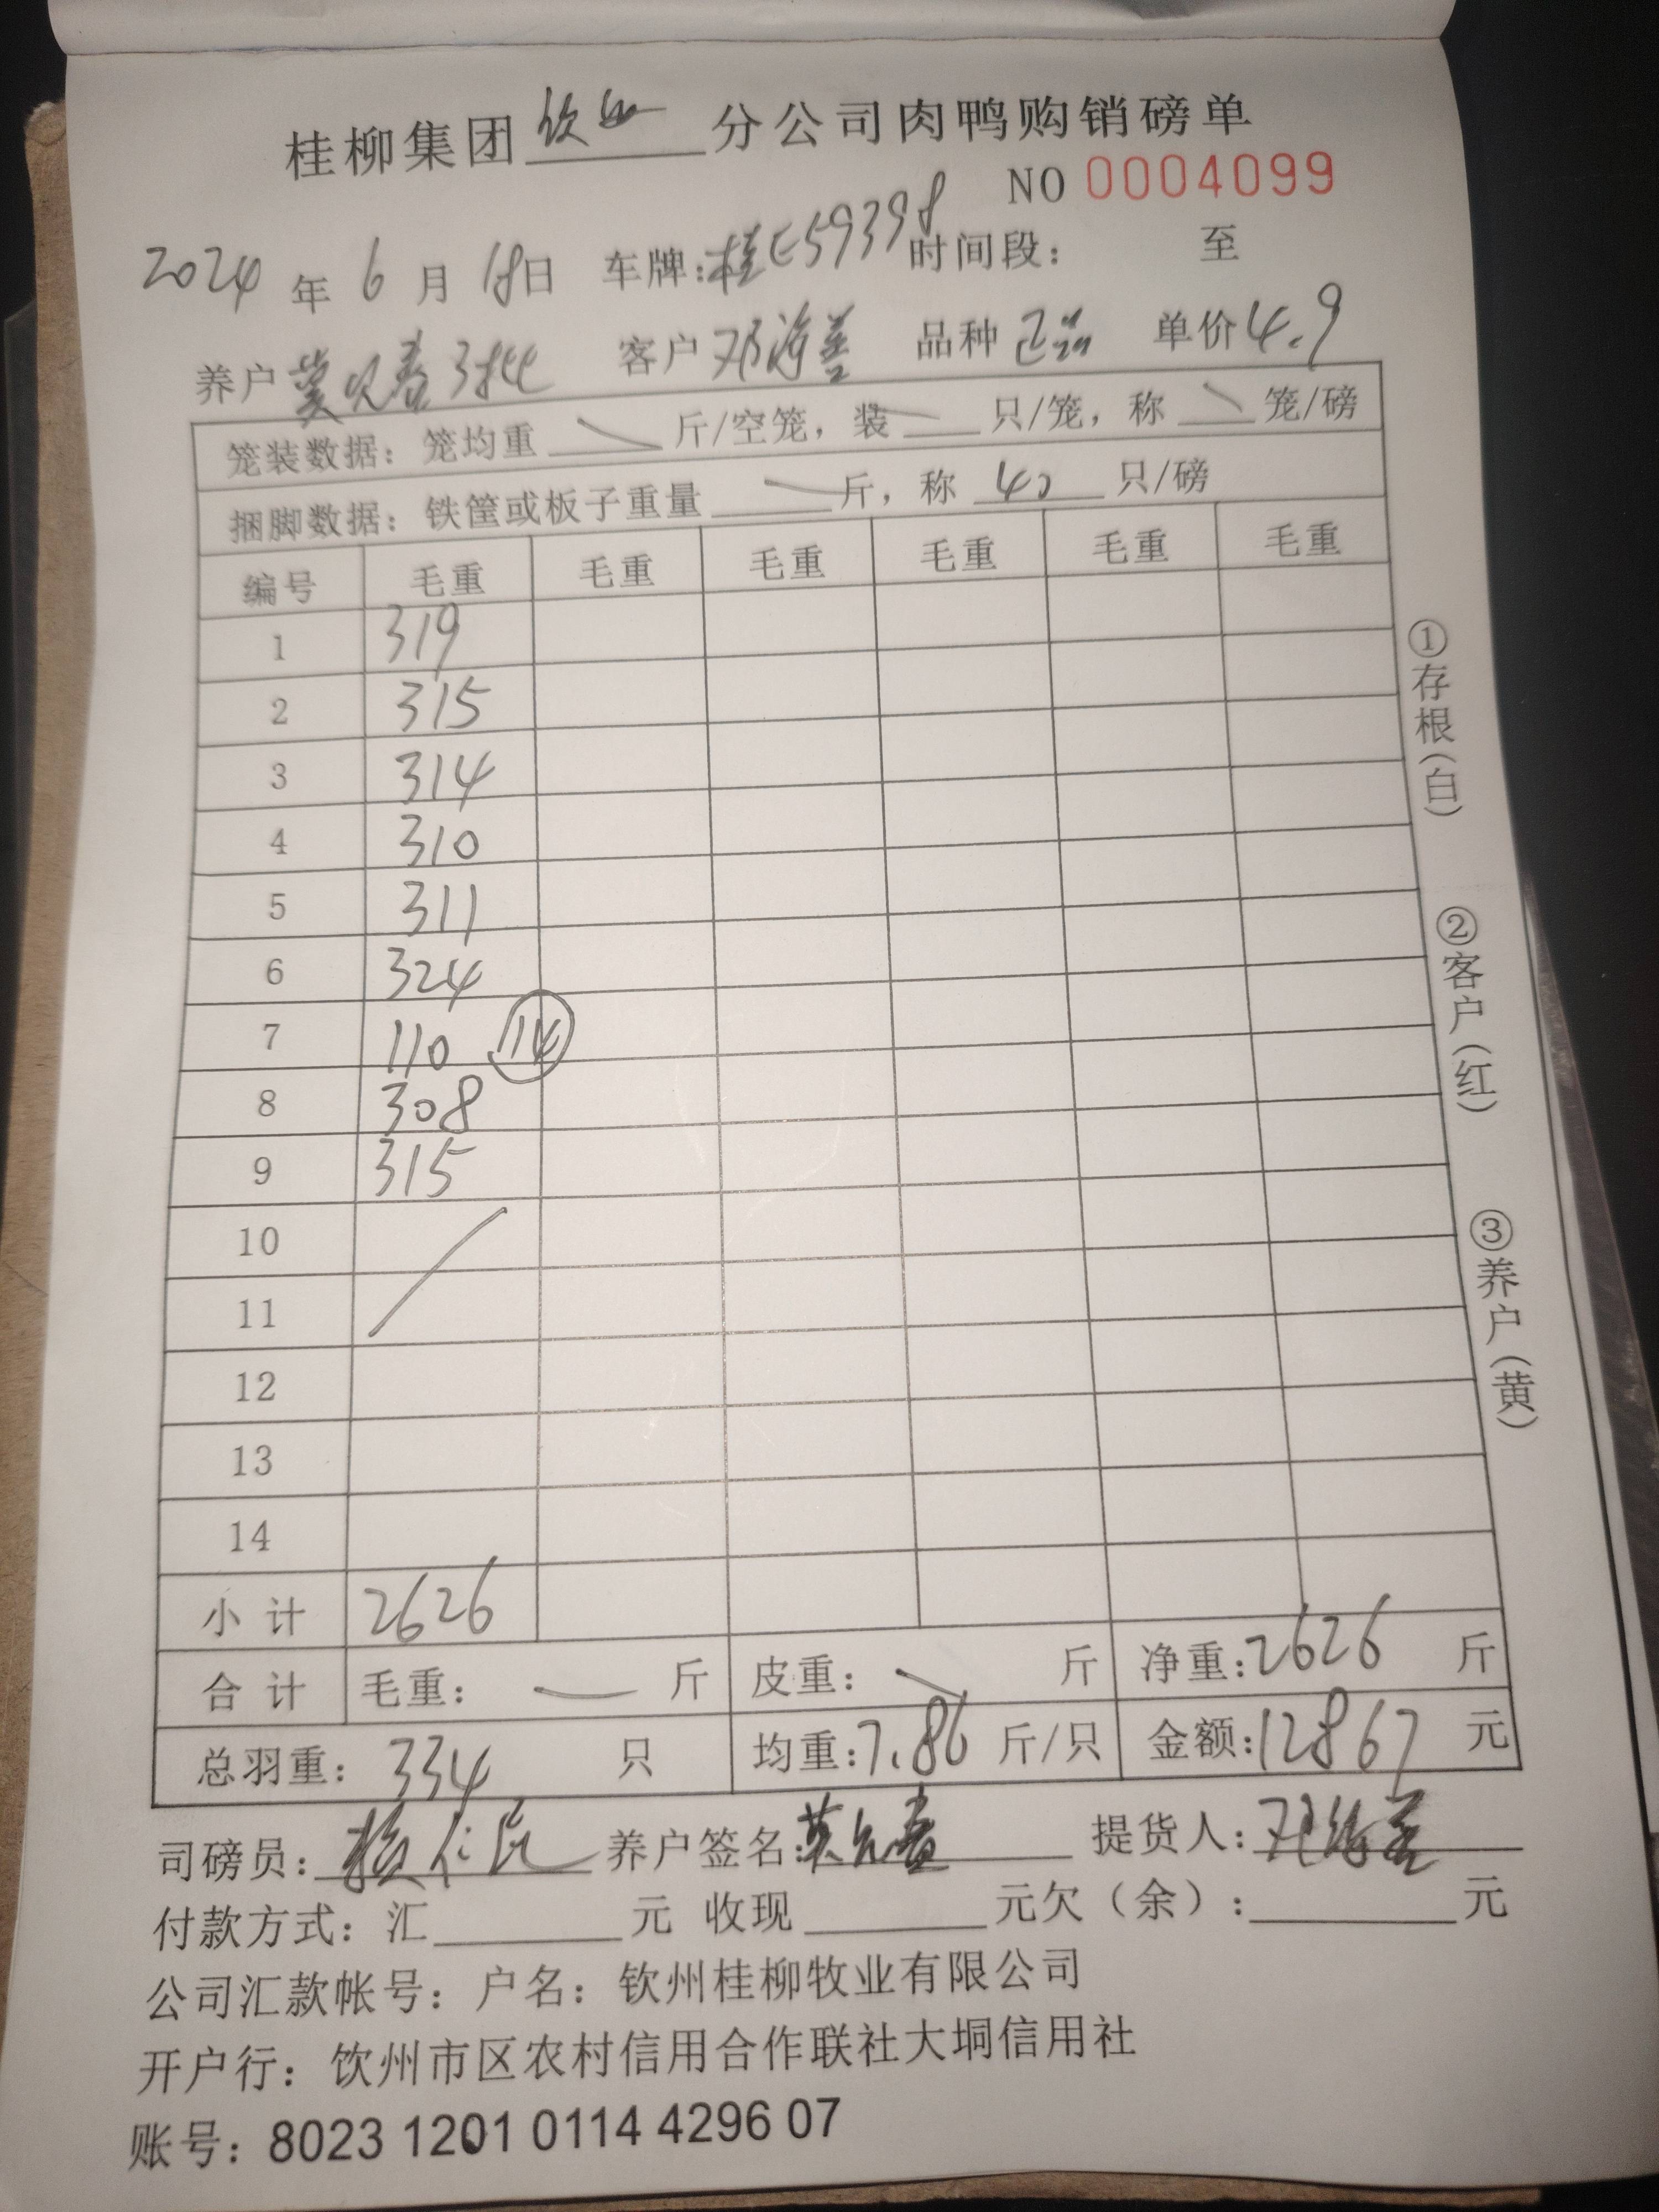 桂柳集团 钦州 分公司肉鸭购销磅单
NO 0004099
2024 年 6 月 18日 车牌:桂E59398 时间段: 至
养户 莫 春3批 客户 邓海善 品种 正品 单价4.9
笼装数据: 笼均重 斤/空笼, 装 只/笼, 称 笼/磅
捆脚数据: 铁筐或板子重量 斤, 称 40 只/磅
编号 毛重 毛重 毛重 毛重 毛重 毛重
1 319
2 315
3 314
4 310
5 311
6 324
7 110 14
8 308
9 315
10
11
12
13
14
小 计 2626
合 计 毛重: 斤 皮重: 斤 净重:2626 斤
总羽重: 334 只 均重:7.86 斤/只 金额:12867 元
司磅员: 养户签名: 莫 春 提货人: 邓海善
付款方式: 汇 元 收现 元欠(余): 元
公司汇款帐号: 户名: 钦州桂柳牧业有限公司
开户行: 钦州市区农村信用合作联社大垌信用社
账号: 8023 1201 0114 4296 07
①存根(白)
②客户(红)
③养户(黄)